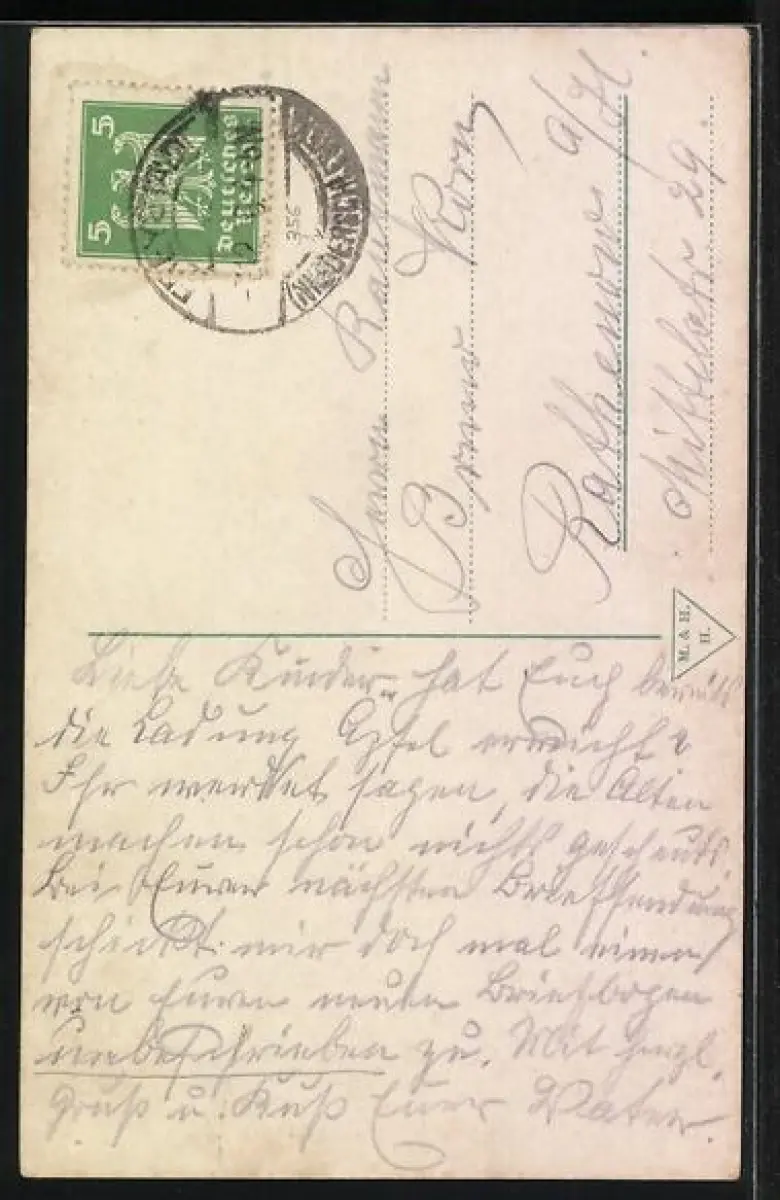 5
5
Deutsches
Reich
(NIEDERSCHLES
356
Herrn Kaufmann
Bruno Korn
Rathenow a/H.
Mittelstr 29.
M. & H.
H.
Liebe Kinder hat Euch bereits
die Ladung Äpfel erreicht?
Ihr werdet sagen, die Alten
machen schon nichts gescheuts.
Bei Eurer nächsten Briefsendung
schickt mir doch mal einen
von Euren neuen Briefbogen
unbeschrieben zu. Mit herzl.
Gruß u. Kuß Euer Vater.